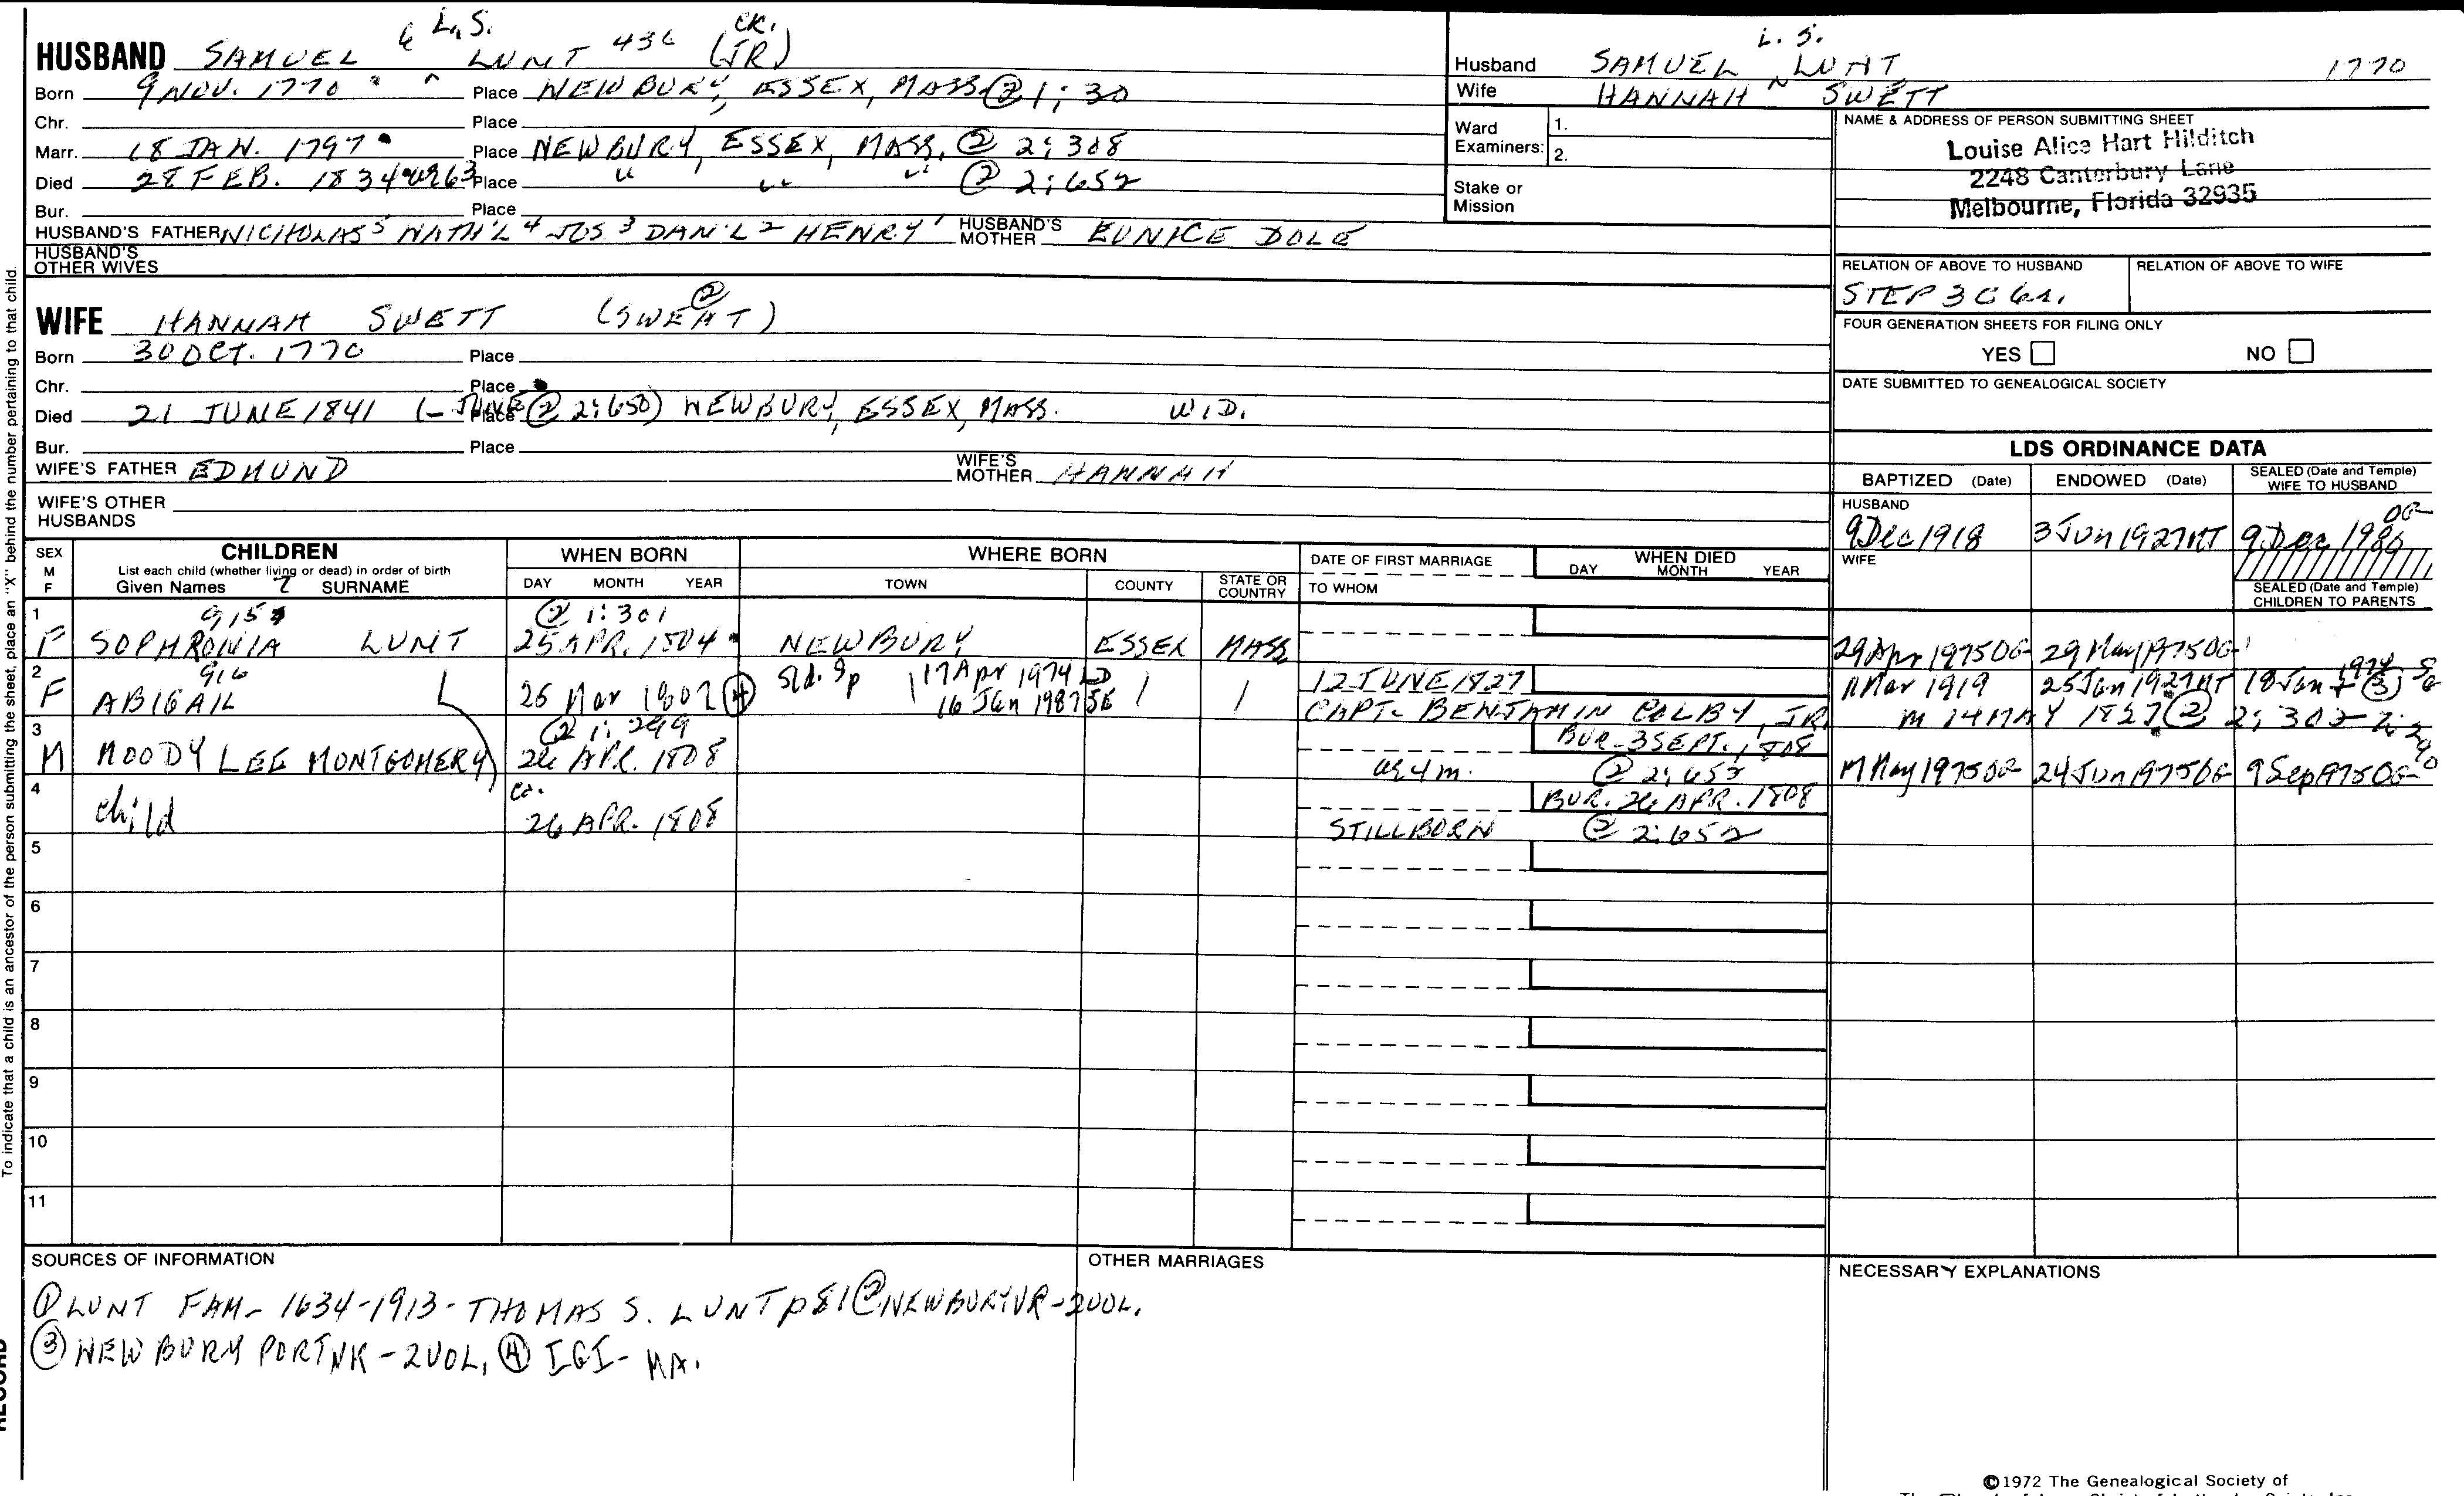 L.S. CK.
HUSBAND SAMUEL 6 LUNT 436 (JR)
Born 9 NOV. 1770 Place NEWBURY, ESSEX, MASS. ② 1:30
Chr. Place
Marr. 18 JAN. 1797 Place NEWBURY, ESSEX, MASS. ② 2:308
Died 28 FEB. 1834 ae 63 Place " " " ② 2:652
Bur. Place
HUSBAND'S FATHER NICHOLAS 5 NATH'L 4 JOS 3 DAN'L 2 HENRY 1 HUSBAND'S MOTHER EUNICE DOLE
HUSBAND'S OTHER WIVES
L. S.
Husband SAMUEL LUNT 1770
Wife HANNAH SWETT
Ward Examiners: 1.
2.
Stake or Mission
NAME & ADDRESS OF PERSON SUBMITTING SHEET
Louise Alice Hart Hilditch
2248 Canterbury Lane
Melbourne, Florida 32935
RELATION OF ABOVE TO HUSBAND RELATION OF ABOVE TO WIFE
STEP 3 C 6
FOUR GENERATION SHEETS FOR FILING ONLY
YES NO
DATE SUBMITTED TO GENEALOGICAL SOCIETY
WIFE HANNAH SWETT (SWEAT) ②
Born 30 OCT. 1770 Place
Chr. Place
Died 21 JUNE 1841 (- JUNE ② 2:650) Place NEWBURY, ESSEX, MASS. WID.
Bur. Place
WIFE'S FATHER EDMUND WIFE'S MOTHER HANNAH
WIFE'S OTHER HUSBANDS
LDS ORDINANCE DATA
BAPTIZED (Date) ENDOWED (Date) SEALED (Date and Temple) WIFE TO HUSBAND
HUSBAND
9 Dec 1918 3 Jun 1927 MT 9 Dec 1980 OG
WIFE
SEALED (Date and Temple) CHILDREN TO PARENTS
SEX M F CHILDREN WHEN BORN WHERE BORN DATE OF FIRST MARRIAGE WHEN DIED
List each child (whether living or dead) in order of birth
Given Names 7 SURNAME DAY MONTH YEAR TOWN COUNTY STATE OR COUNTRY TO WHOM DAY MONTH YEAR
1 915 ② 1:301
F SOPHRONIA LUNT 25 APR. 1804 NEWBURY ESSEX MASS 29 Apr 1975 OG 29 May 1975 OG
2 916 sld. Sp 17 Apr 1974 LD 12 JUNE 1827 11 Mar 1919 25 Jan 1927 MT 18 Jan 1974
F ABIGAIL 25 Mar 1807 ④ 16 Jan 1987 CAPT. BENJAMIN COLBY, JR. m 14 MAY 1827 ② 2:302
3 ② 1:299 BUR. 3 SEPT. 1808
M MOODY LEE MONTGOMERY 26 APR. 1808 ae 4 m. ② 2:652 24 Jun 1975 OG 9 Sep 1975 OG
4 ca. BUR. 26 APR. 1808
child 26 APR. 1808 STILLBORN ② 2:652
5
6
7
8
9
10
11
SOURCES OF INFORMATION OTHER MARRIAGES NECESSARY EXPLANATIONS
① LUNT FAM- 1634-1913- THOMAS S. LUNT p81 ② NEWBURY VR-2VOL.
③ NEWBURYPORT VR-2VOL, ④ IGI- MA.
To indicate that a child is an ancestor of the person submitting the sheet, place an "X" behind the number pertaining to that child.
©1972 The Genealogical Society of